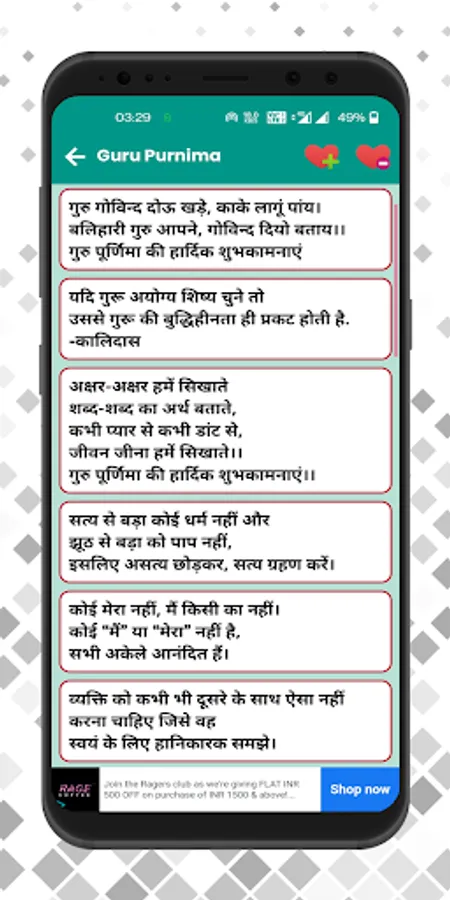 03:29
49%
Guru Purnima
गुरु गोविन्द दोऊ खड़े, काके लागूं पांय।
बलिहारी गुरु आपने, गोविन्द दियो बताय।।
गुरु पूर्णिमा की हार्दिक शुभकामनाएं
यदि गुरू अयोग्य शिष्य चुने तो
उससे गुरू की बुद्धिहीनता ही प्रकट होती है.
-कालिदास
अक्षर-अक्षर हमें सिखाते
शब्द-शब्द का अर्थ बताते,
कभी प्यार से कभी डांट से,
जीवन जीना हमें सिखाते।।
गुरु पूर्णिमा की हार्दिक शुभकामनाएं।।
सत्य से बड़ा कोई धर्म नहीं और
झूठ से बड़ा को पाप नहीं,
इसलिए असत्य छोड़कर, सत्य ग्रहण करें।
कोई मेरा नहीं, मैं किसी का नहीं।
कोई "मैं" या "मेरा" नहीं है,
सभी अकेले आनंदित हैं।
व्यक्ति को कभी भी दूसरे के साथ ऐसा नहीं
करना चाहिए जिसे वह
स्वयं के लिए हानिकारक समझे।
RAGE
COFFEE
Join the Ragers club as we're giving FLAT INR
500 OFF on purchase of INR 1500 & above!...
Shop now